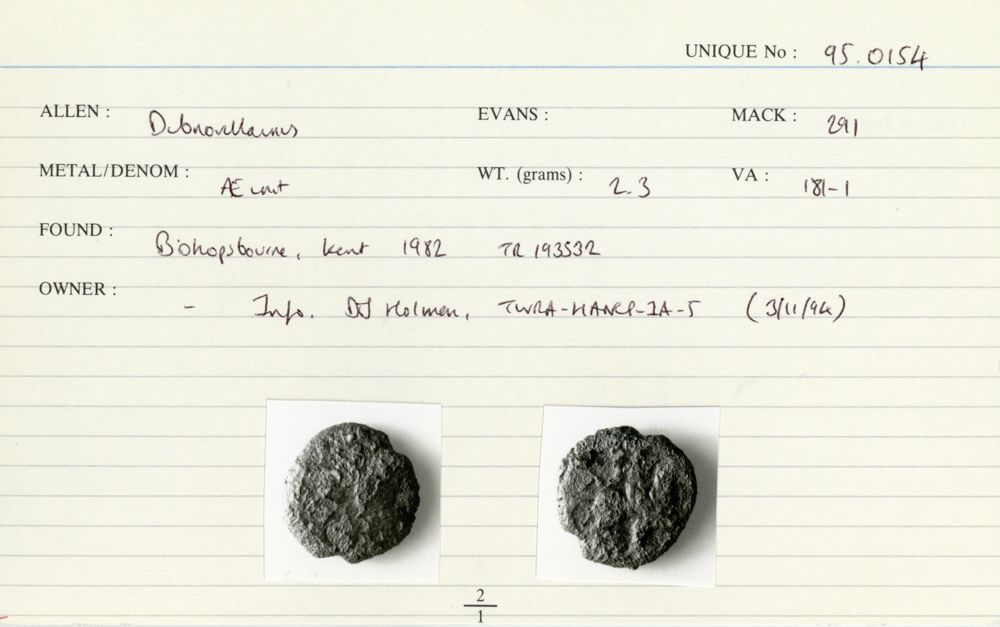 UNIQUE No : 95.0154
ALLEN : Dubnovellaunus EVANS : MACK : 291
METAL/DENOM : Æ unit WT. (grams) : 2.3 VA : 181-1
FOUND : Bishopsbourne, Kent 1982 TR 193532
OWNER : - Info. DJ Holman, (3/11/94)
2
1